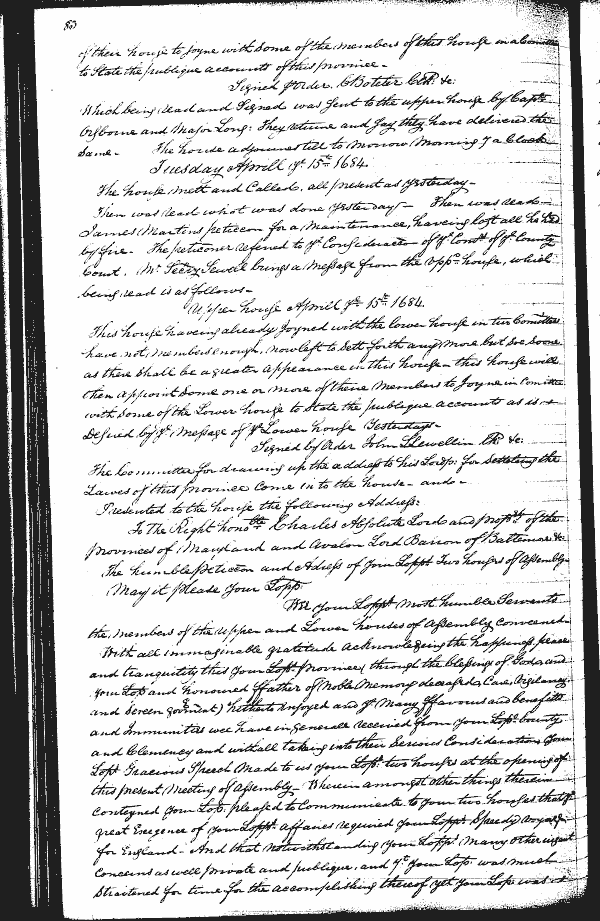 of their house to Joyne with some of the members of this house in a Comittee
to State the publique accounts of this province -
Signed p Order, C Boteler Clk. &c:
Which being read and Signed was sent to the upper house by Capt.
Osborne and Major Long: They returne and say they have delivered the
same - The house adjourned till to Morrow Morning 7 a Clock
Tuesday Aprill ye 15th 1684.
The house mett and Called, all present as yesterday -
Then was read what was done yesterday - Then was read -
James Martins peticon for a Maintenance, haveing lost all he had
by fire - The peticoner refered to ye Consideracon of ye Comrs of ye County
Court. Mr Secry Sewell brings a Message from the uppr house, which
being read is as follows -
Upper house Aprill ye 15th 1684.
This house haveing already Joyned with the lower house in two Comittees
have not members enough, now left to sett forth any more but soe soone
as there shall be a greater appearance in this house - this house will
then appoint some one or more of theire Members to Joyne in Comitte
with some of the Lower house to State the publique accounts as is
Desired by ye Message of ye Lower house Yesterday -
Signed by Order John Llewellin Clk &c:
The Committee for drawing up the address to his Lordsp: for the
Lawes of this province Come in to the house - and -
Presented to the house the following Address:
To The Right honoble Charles Absolute Lord and propry of the
provinces of Maryland and Avalon Lord Barron of Baltemore &c
The humble peticon and Adress of your Lopps Two houses of Assembly
May it please your Lopp
Wee your Lopps most humble Servants
the members of the upper and Lower houses of Assembly convened
With all immaginable gratitude acknowledging the happiness, peace
and tranquitity this your Lopps province (through the blessing of God, and
your Lopp and honoured ffather of Noble Memory deceased, Care, Vigilancy
and Sereen governmt) hitherto enjoyed and ye many ffavours and benefitts
and Immunities wee have in generale received from your Lopps bounty
and Clemency and withall taking into their Serious Consideration your
Lopps Gracious Speech Made to us your Lopps two houses at the opening of
this present Meeting of Assembly - Wherein amongst other things therein
conteyned your Lop. pleased to Communicate to your two houses that ye
great Exegence of your Lopps affaires required your Lopps Speedy voyage
for England - And that notwithstanding your Lopps many other urgent
Concerns as well private and publique, and yt your Lop was much
Straitened for time for the accomplishing thereof yet your Lop was